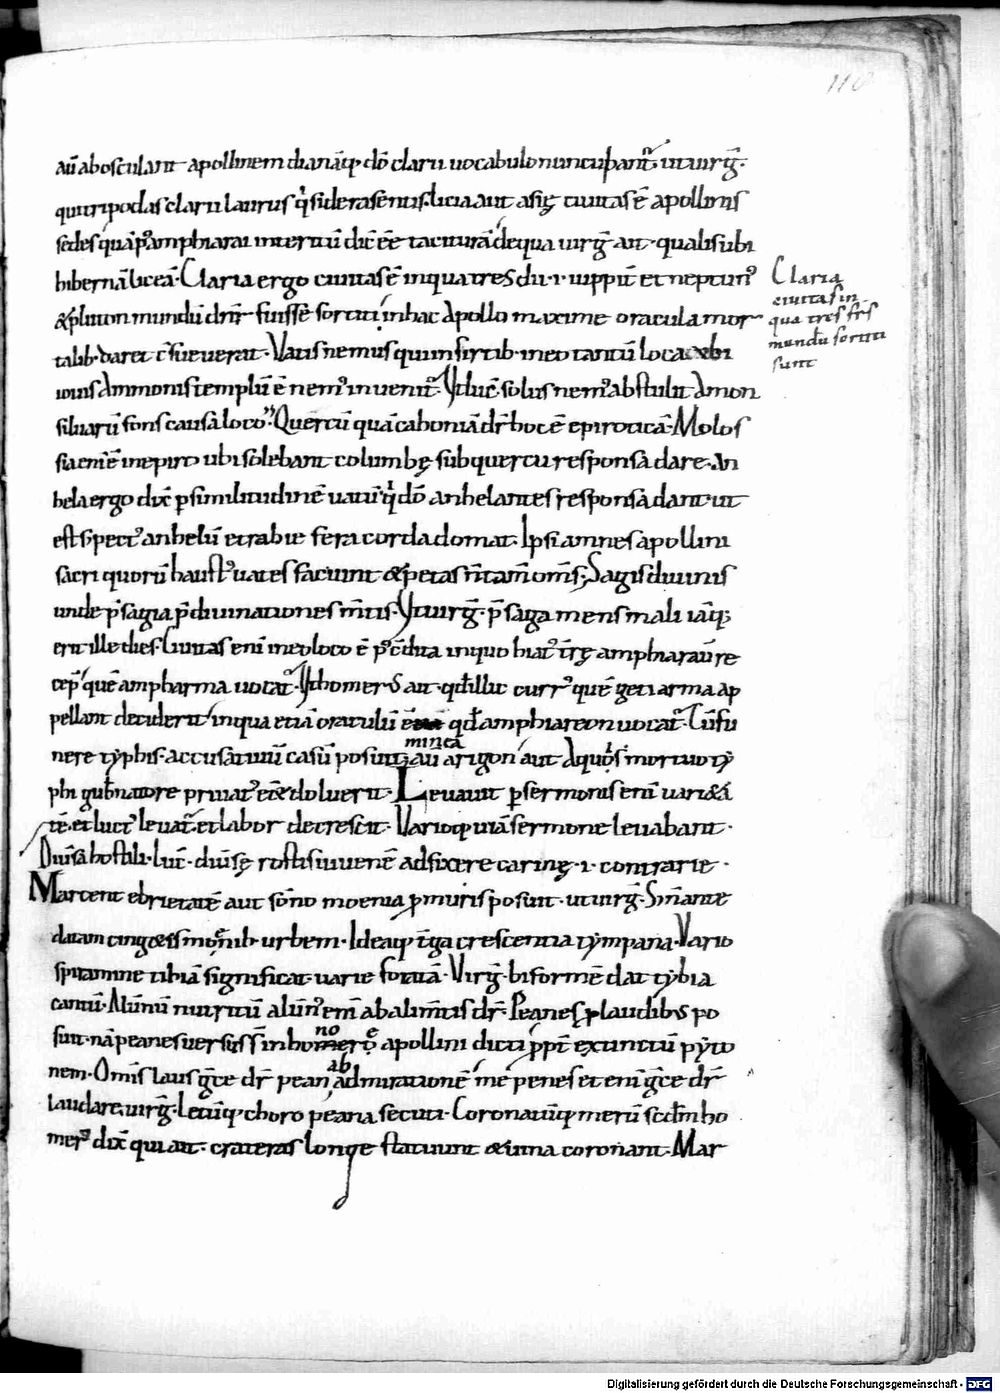 118
aū abosculant apollinem dianāq; dō clarii uocabulo nuncupant̄ ut uirg̅.
qui tripodas clarii laurus q̇ sidera sentis licia aut asię ciuitas ē apollinis
sedes quā p̄ amphiarai interitū dic̄ ēē taciturā de qua uirg̅ ait. qualis ubi
hibernā liceā. Claria ergo ciuitas ē in qua tres dii .i. iuppit̄ et neptun᷒
& pluton mundū dn̄r fuisse sortiti in hac Apollo maxime oracula mor
talib. dare c̄sueuerat. Vatis nemus
iouis Ammonis templū ē nem᷒ inuenit᷒. Yt luc̄. solus nem᷒ abstulit Amon
siluarū fons causa loco. Quercū quā cahoniā dr̄ hoc ē epiroticā. Molos
sia enī ē in epiro ubi solebant columbę sub quercu responsa dare. An
hela ergo dix̄ p similitudinē uatū q̇ dō anhelantes responsa dant ut
est & pect᷒ anhelū et rabie fera corda domat. Ipsi amnes apollini
sacri quorū haust᷒ uates faciunt & petas n̄ tam̄ om̄s; Sagis diuinis
unde p̄sagia p̄diuinationes m̄tis. Yt uirg̅. p̄saga mens mali iāq;
erit ille dies. Ciuitas enī in eo loco ē p᷒ c̄dita in quo hiat᷒ t̄rę amphiaraū re
cep̄ quē ampharma uocat᷒. Yt homerS ait qd̄ illic curr᷒ quē geti arma ap
pellant deciderit in qua etiā oraculū ē qd̄ amphiareon uocat᷒. Cū fu
nere typhis. accusatiuū casū posuit
minc̄a
aū arigon aut A quo si mortuo ty
phi gub̄natore priuat᷒ eē & doluerit. Leuant p sermonis enī uari&a
tē. et luct᷒ leuat᷒. et labor decrescit. Varioq; uiā sermone leuabant.
Diūsa hostili. luc̄. diūsę rostis iuuenē adfixere carinę .i. contrarie.
Marcent ebrietatē aut sōno moenia p muris posuit. ut uirg̅.
datam cing&
 urbem. Ideaq; t̄ga crescentia tympana. Vario
spiramine tibiā significat uarie foratā. Virg̅. biformē dat tybia
cantū. Alūnū nutritū alūn᷒ em̄ ab alim̄tis dr̄. Peanes p laudib; po
suit. nā peanes uersus s̄ in ho
no
rę apollini dicti ppt̄ extinctū pyto
nem. Om̄is laus g̅ce dr̄ pean
ab
admirationē
 et enī g̅ce dr̄
laudare. uirg̅. Letūq; choro peana secuti. Coronatūq; merū scd̄m ho
mer᷒ dix̄ qui ait. crateras longe statuunt & uina coronant. Mar
Claria
ciuitas in
qua tres frs̄
mundū sortiti
sunt
Digitalisierung gefördert durch die Deutsche Forschungsgemeinschaft - DFG